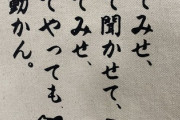 てみせ、
て聞かせて、
てみせ、
てやっても
動かん。